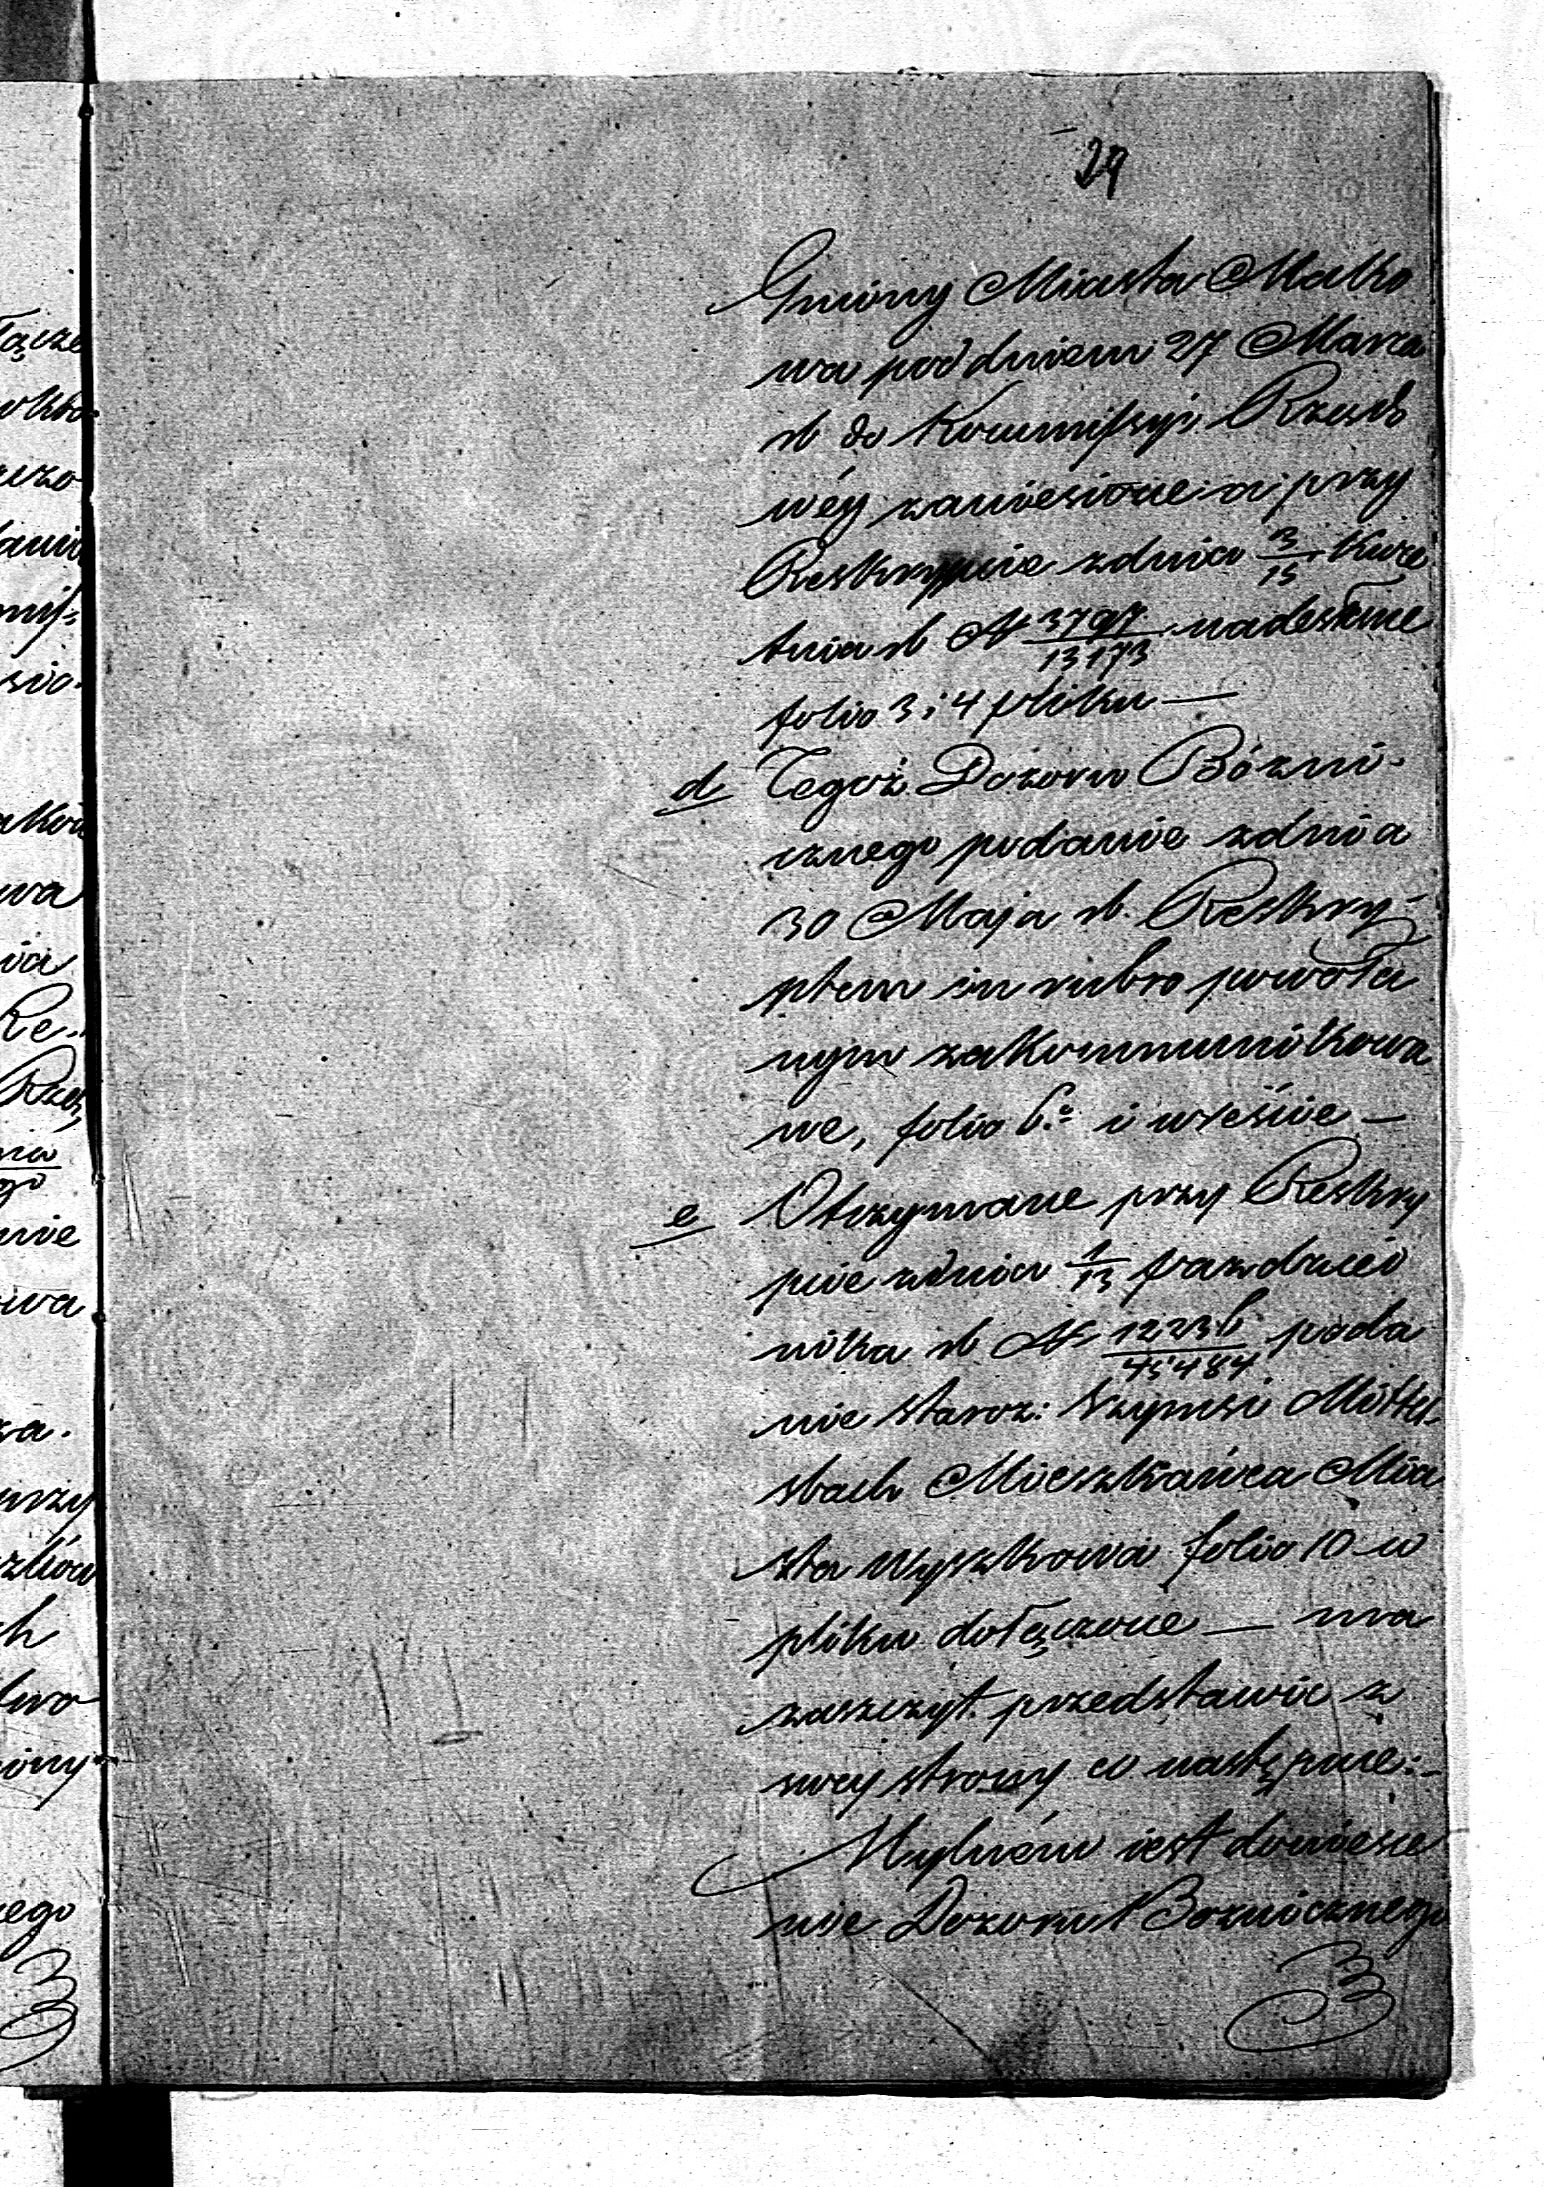 29
Gminy Miasta Mako
wa pod dniem 27 Marca
rb do Kommissyi Rządo
wéy zaniesione a przy
Reskrypcie z dnia 3/15 Kwie
tnia rb N 3797/13173 nadesłane
folio 3 i 4 pliku —
d Tegoż Dozoru Bózni-
cznego podanie z dnia
30 Maja rb. Reskry-
ptem in rubro powoła
nym zakommunikowa
ne, folio 6.° i wreście —
e Otrzymane przy Reskry
pcie z dnia 1/13 pazdzier
nika rb N 12236/45484 poda
nie staroz: Szymsi Mittel-
sbach Mieszkańca Mia
sta Wyszkowa folio 10 w
pliku dołączone — ma
zaszczyt przedstawić z
swey strony co następuie:-
Mylném iest doniesie
nie Dozoru Boznicznego